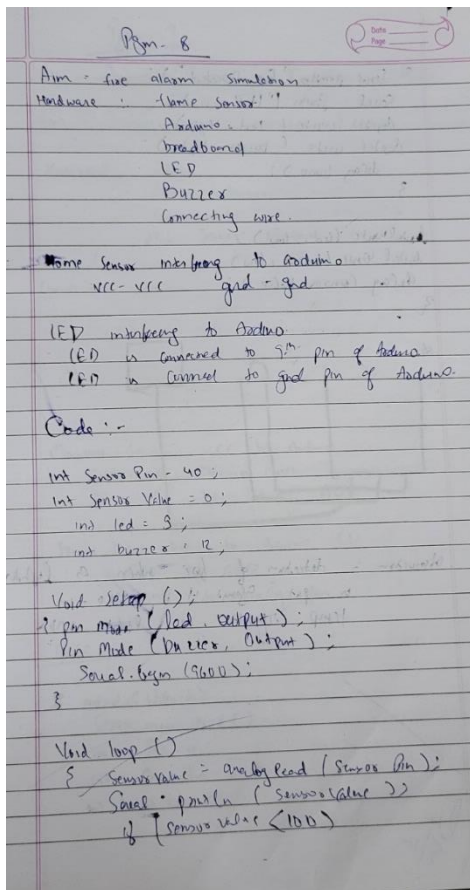 Pgm - 8
Date
Page
Aim - fire alarm Simulation
Hardware : - flame Sensor
Arduino
breadboard
LED
Buzzer
Connecting wire.
flame Sensor interfacing to arduino
VCC - VCC gnd - gnd
LED interfacing to Arduino
LED is connected to 9th pin of Arduino
LED is connected to gnd pin of Arduino.
Code : -
int Sensor Pin - A0 ;
int Sensor Value = 0 ;
int led = 9 ;
int buzzer = 12 ;
Void setup () ;
{ pin mode (led, output) ;
Pin Mode (buzzer, Output) ;
Serial.begin (9600) ;
}
Void loop ()
{ Sensor value = analog Read (Sensor Pin) ;
Serial . println (Sensor Value ) ;
if (sensor value < 100)